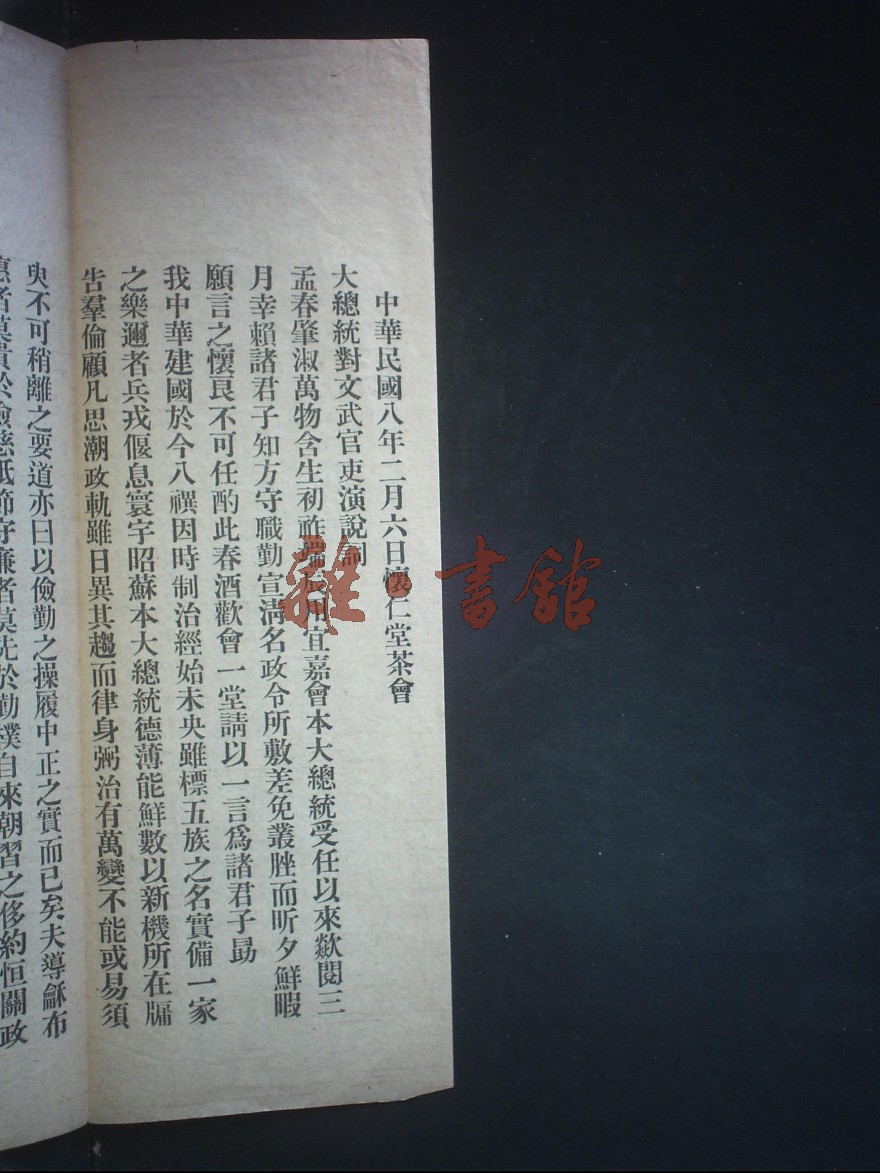 中華民國八年二月六日懷仁堂茶會
大總統對文武官吏演說詞
孟春肇淑萬物含生初祚瑞辰用宜嘉會本大總統受任以來歘閱三
月幸賴諸君子知方守職勤宣淸名政令所敷差免叢脞而昕夕鮮暇
願言之懷良不可任酌此春酒歡會一堂請以一言爲諸君子勗
我中華建國於今八禩因時制治經始未央雖標五族之名實備一家
之樂邇者兵戎偃息寰宇昭蘇本大總統德薄能鮮數以新機所在牖
告羣倫顧凡思潮政軌雖日異其趨而律身弼治有萬變不能或易須
臾不可稍離之要道亦曰以儉勤之操履中正之實而已矣夫導龢布
惠者莫貴於儉慈祇節守廉者莫先於勤樸自來朝習之侈約恒關政
雜·書館